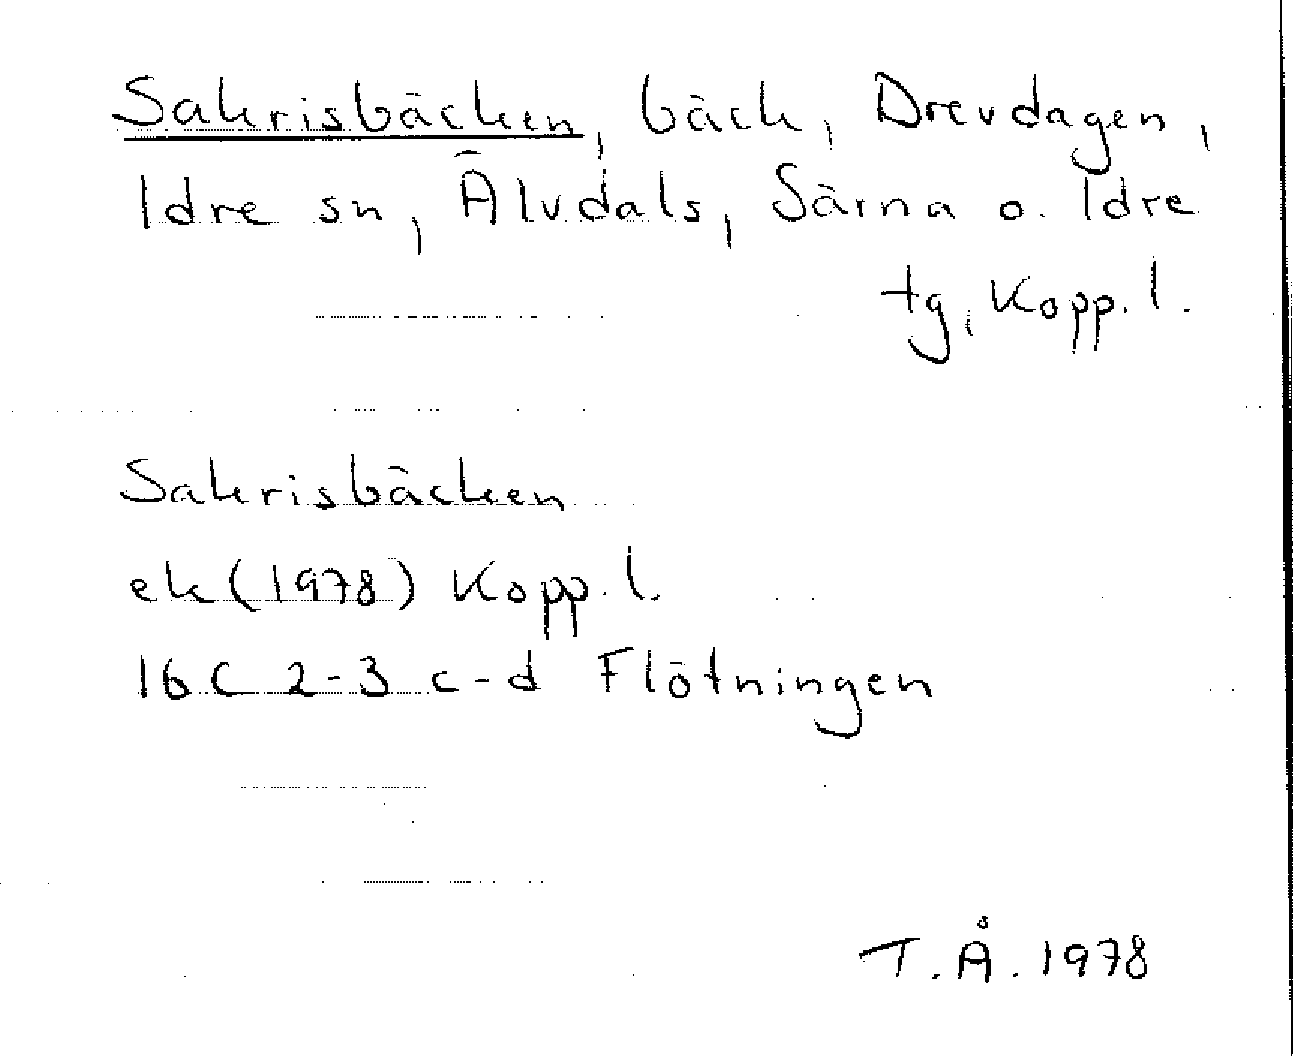 Sakrisbäcken, bäck, Drevdagen,
Idre sn, Älvdals, Särna o. Idre
tg, Kopp. l.
Sakrisbäcken
ek (1978) Kopp. l.
16 C 2-3 c-d Flötningen
T. Å. 1978